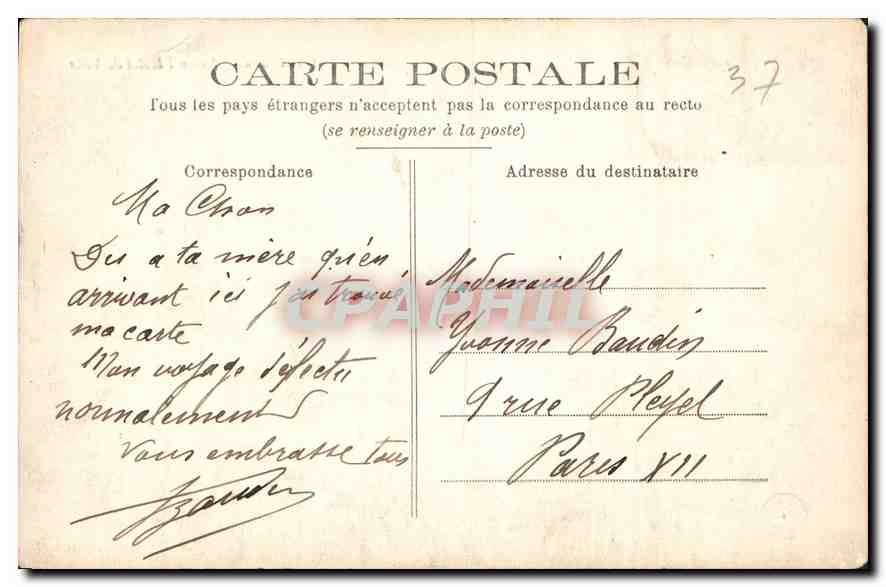 CARTE POSTALE
37
Tous les pays étrangers n'acceptent pas la correspondance au recto
(se renseigner à la poste)
Correspondance
Ma
Dis a ta mère qu'en
arrivant ici j'ai trouvé
ma carte
Mon voyage
normalement
Vous embrasse tous
Adresse du destinataire
Mademoiselle
Yvonne Baudin
9 rue Pleyel
Paris XII
CPAPHIL